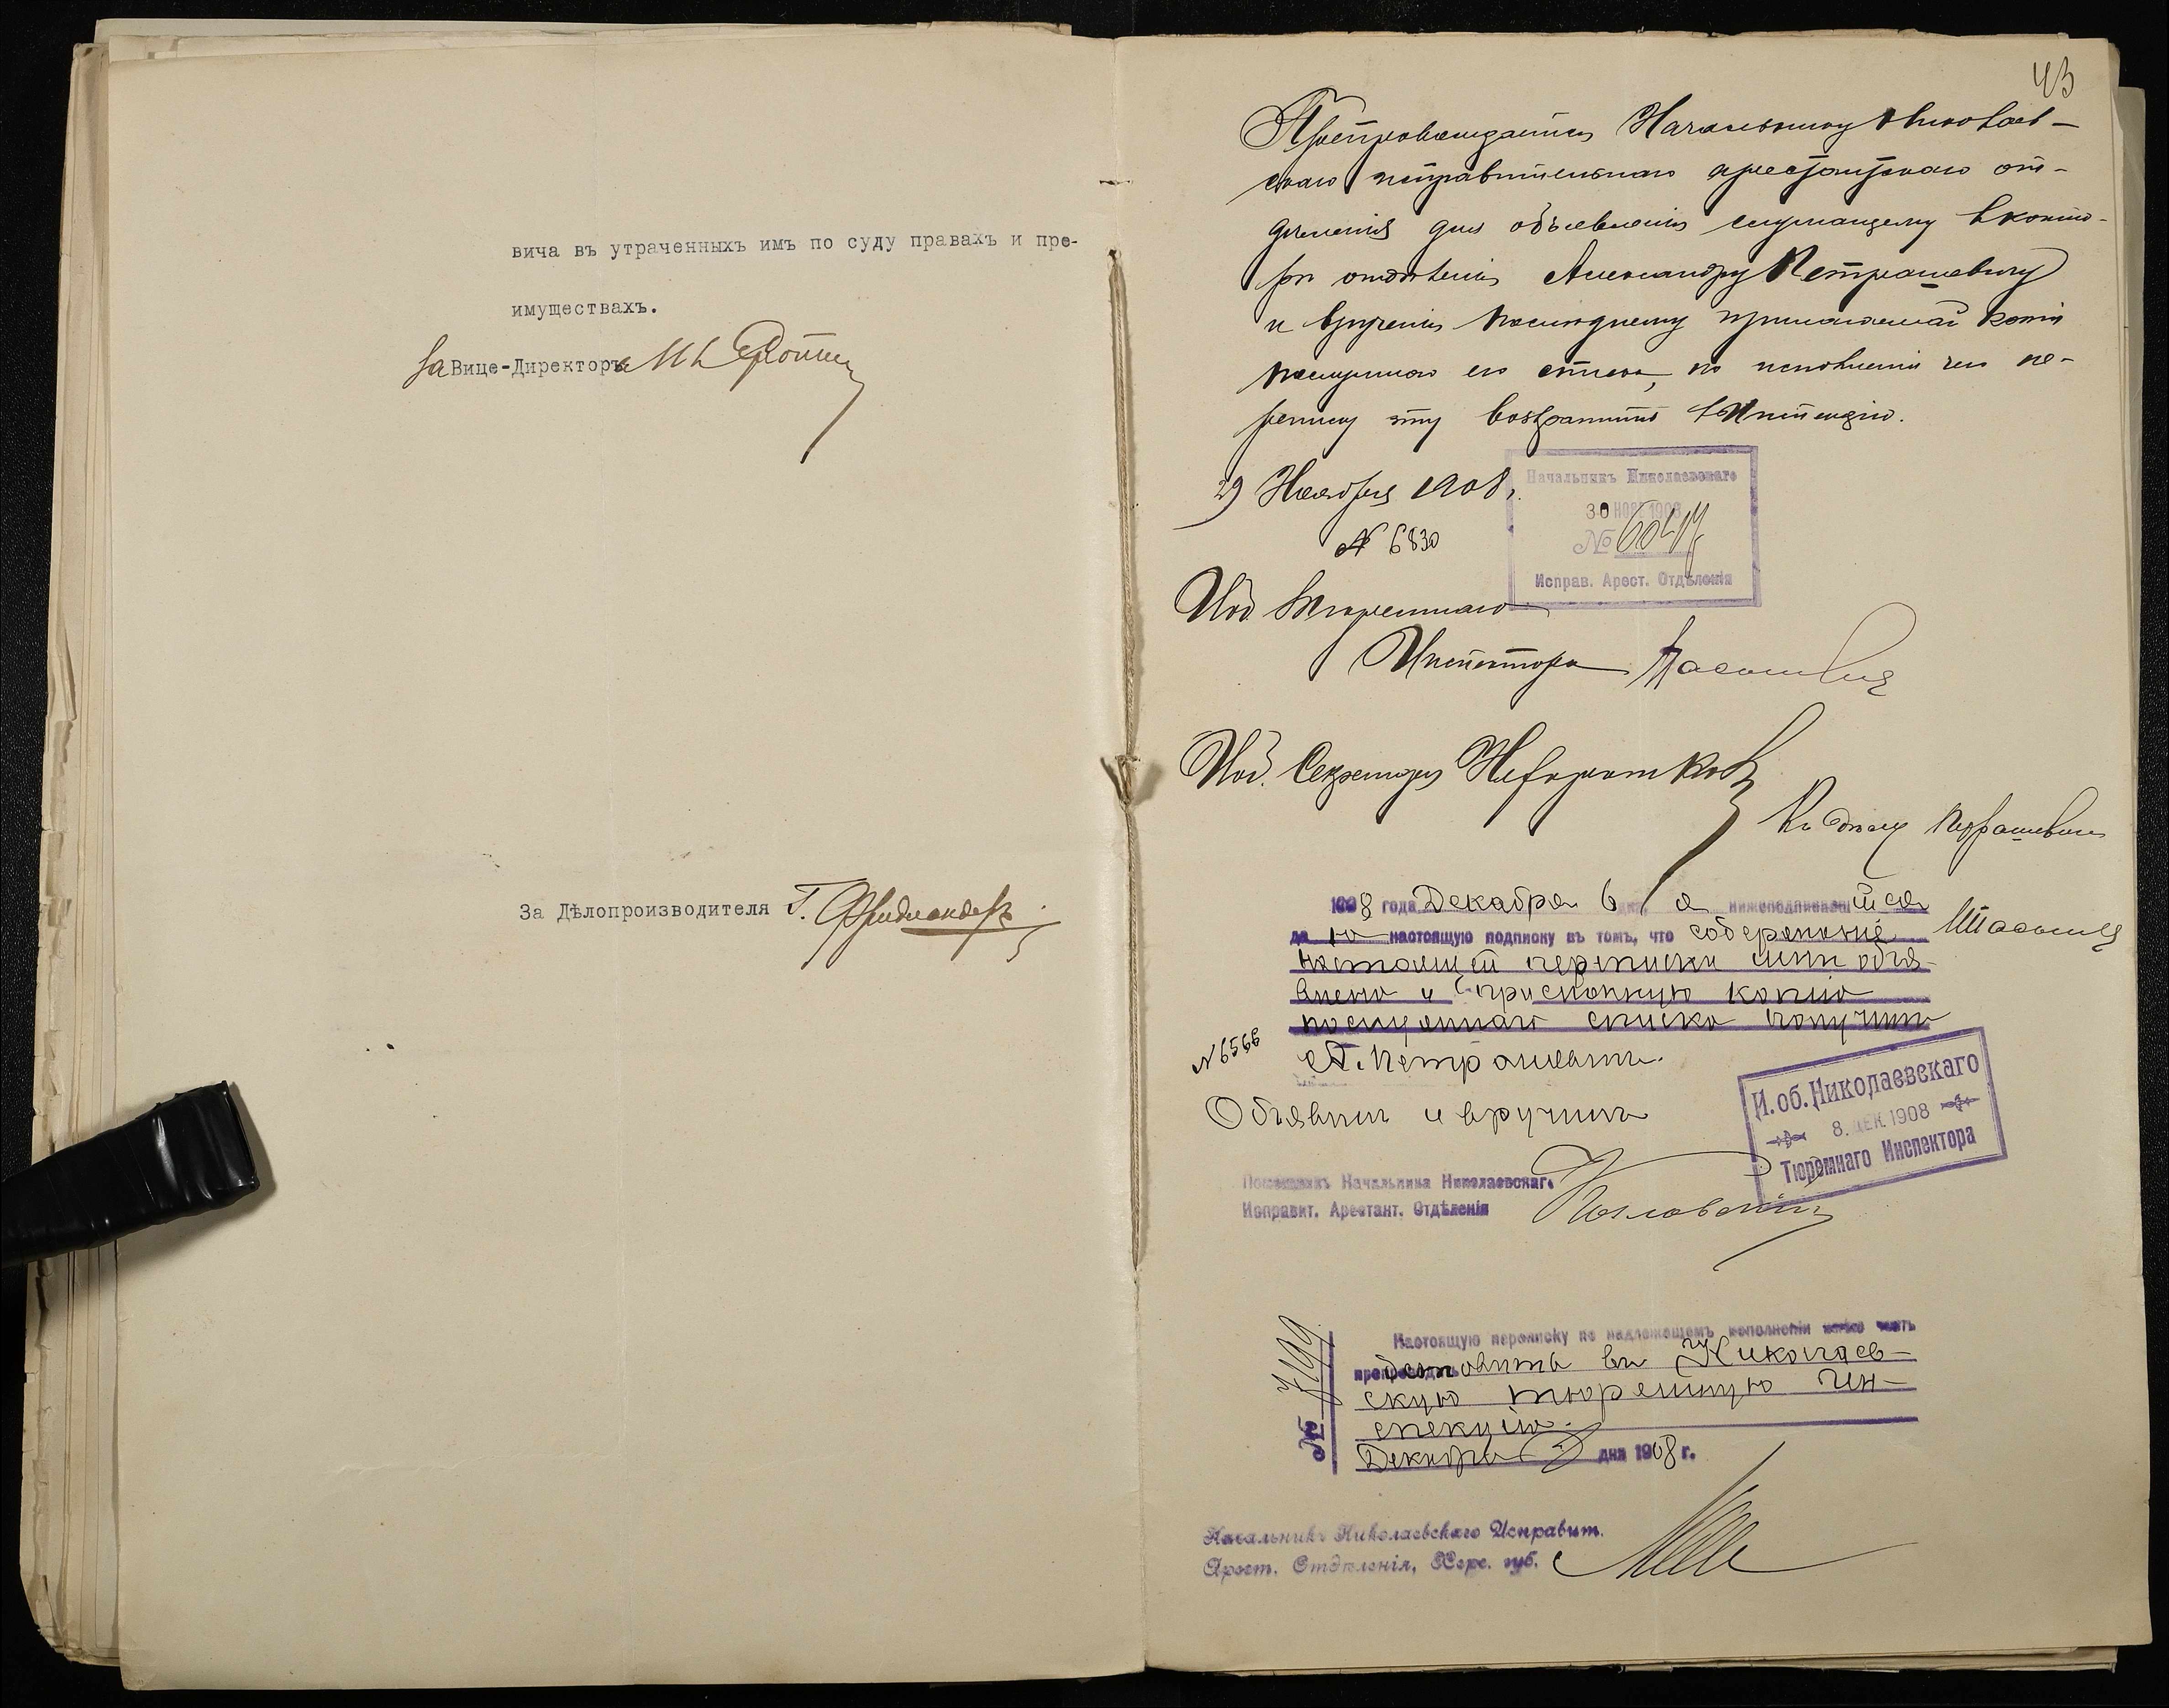 вича въ утраченныхъ имъ по суду правахъ и пре-
имуществахъ.
За Вице-Директора
За Дѣлопроизводителя Г. Фридландеръ
43
Препровождается Начальнику Николаев-
скаго исправительнаго арестантскаго от-
дѣленія для объявленія служащему в конто-
рѣ отдѣленія Александру Петрашевичу
и врученія послѣднему прилагаемой копіи
послужного его списка, по исполненіи чего пе-
реписку эту возвратить в Инспекцію.
29 Ноября 1908 г.
№ 6830
Начальникъ Николаевскаго
30 НОЯ 1908
№
Исправ. Арест. Отдѣленія
Иоб. Тюремнаго
Инспектора
Иоб. Секретаря
Къ дѣлу Петрашевича
1908 года Декабря 6 дня, я нижеподписавшійся
даю настоящую подписку въ томъ, что содержаніе
настоящей переписки мнѣ объя-
влено и присланную копію
послужнаго списка получилъ
№ 6566
А. Петрашевичъ.
Объявилъ и вручилъ
И. об. Николаевскаго
8. ДЕК. 1908
Тюремнаго Инспектора
Помощникъ Начальника Николаевскаго
Исправит. Арестант. Отдѣленія Козловскій
Настоящую переписку по надлежащемъ исполненіи
въ Николаев-
скую тюремную Ин-
спекцію.
Декабря дня 1908 г.
№ 7199
Начальникъ Николаевскаго Исправит.
Арест. Отдѣленія, Херс. губ.